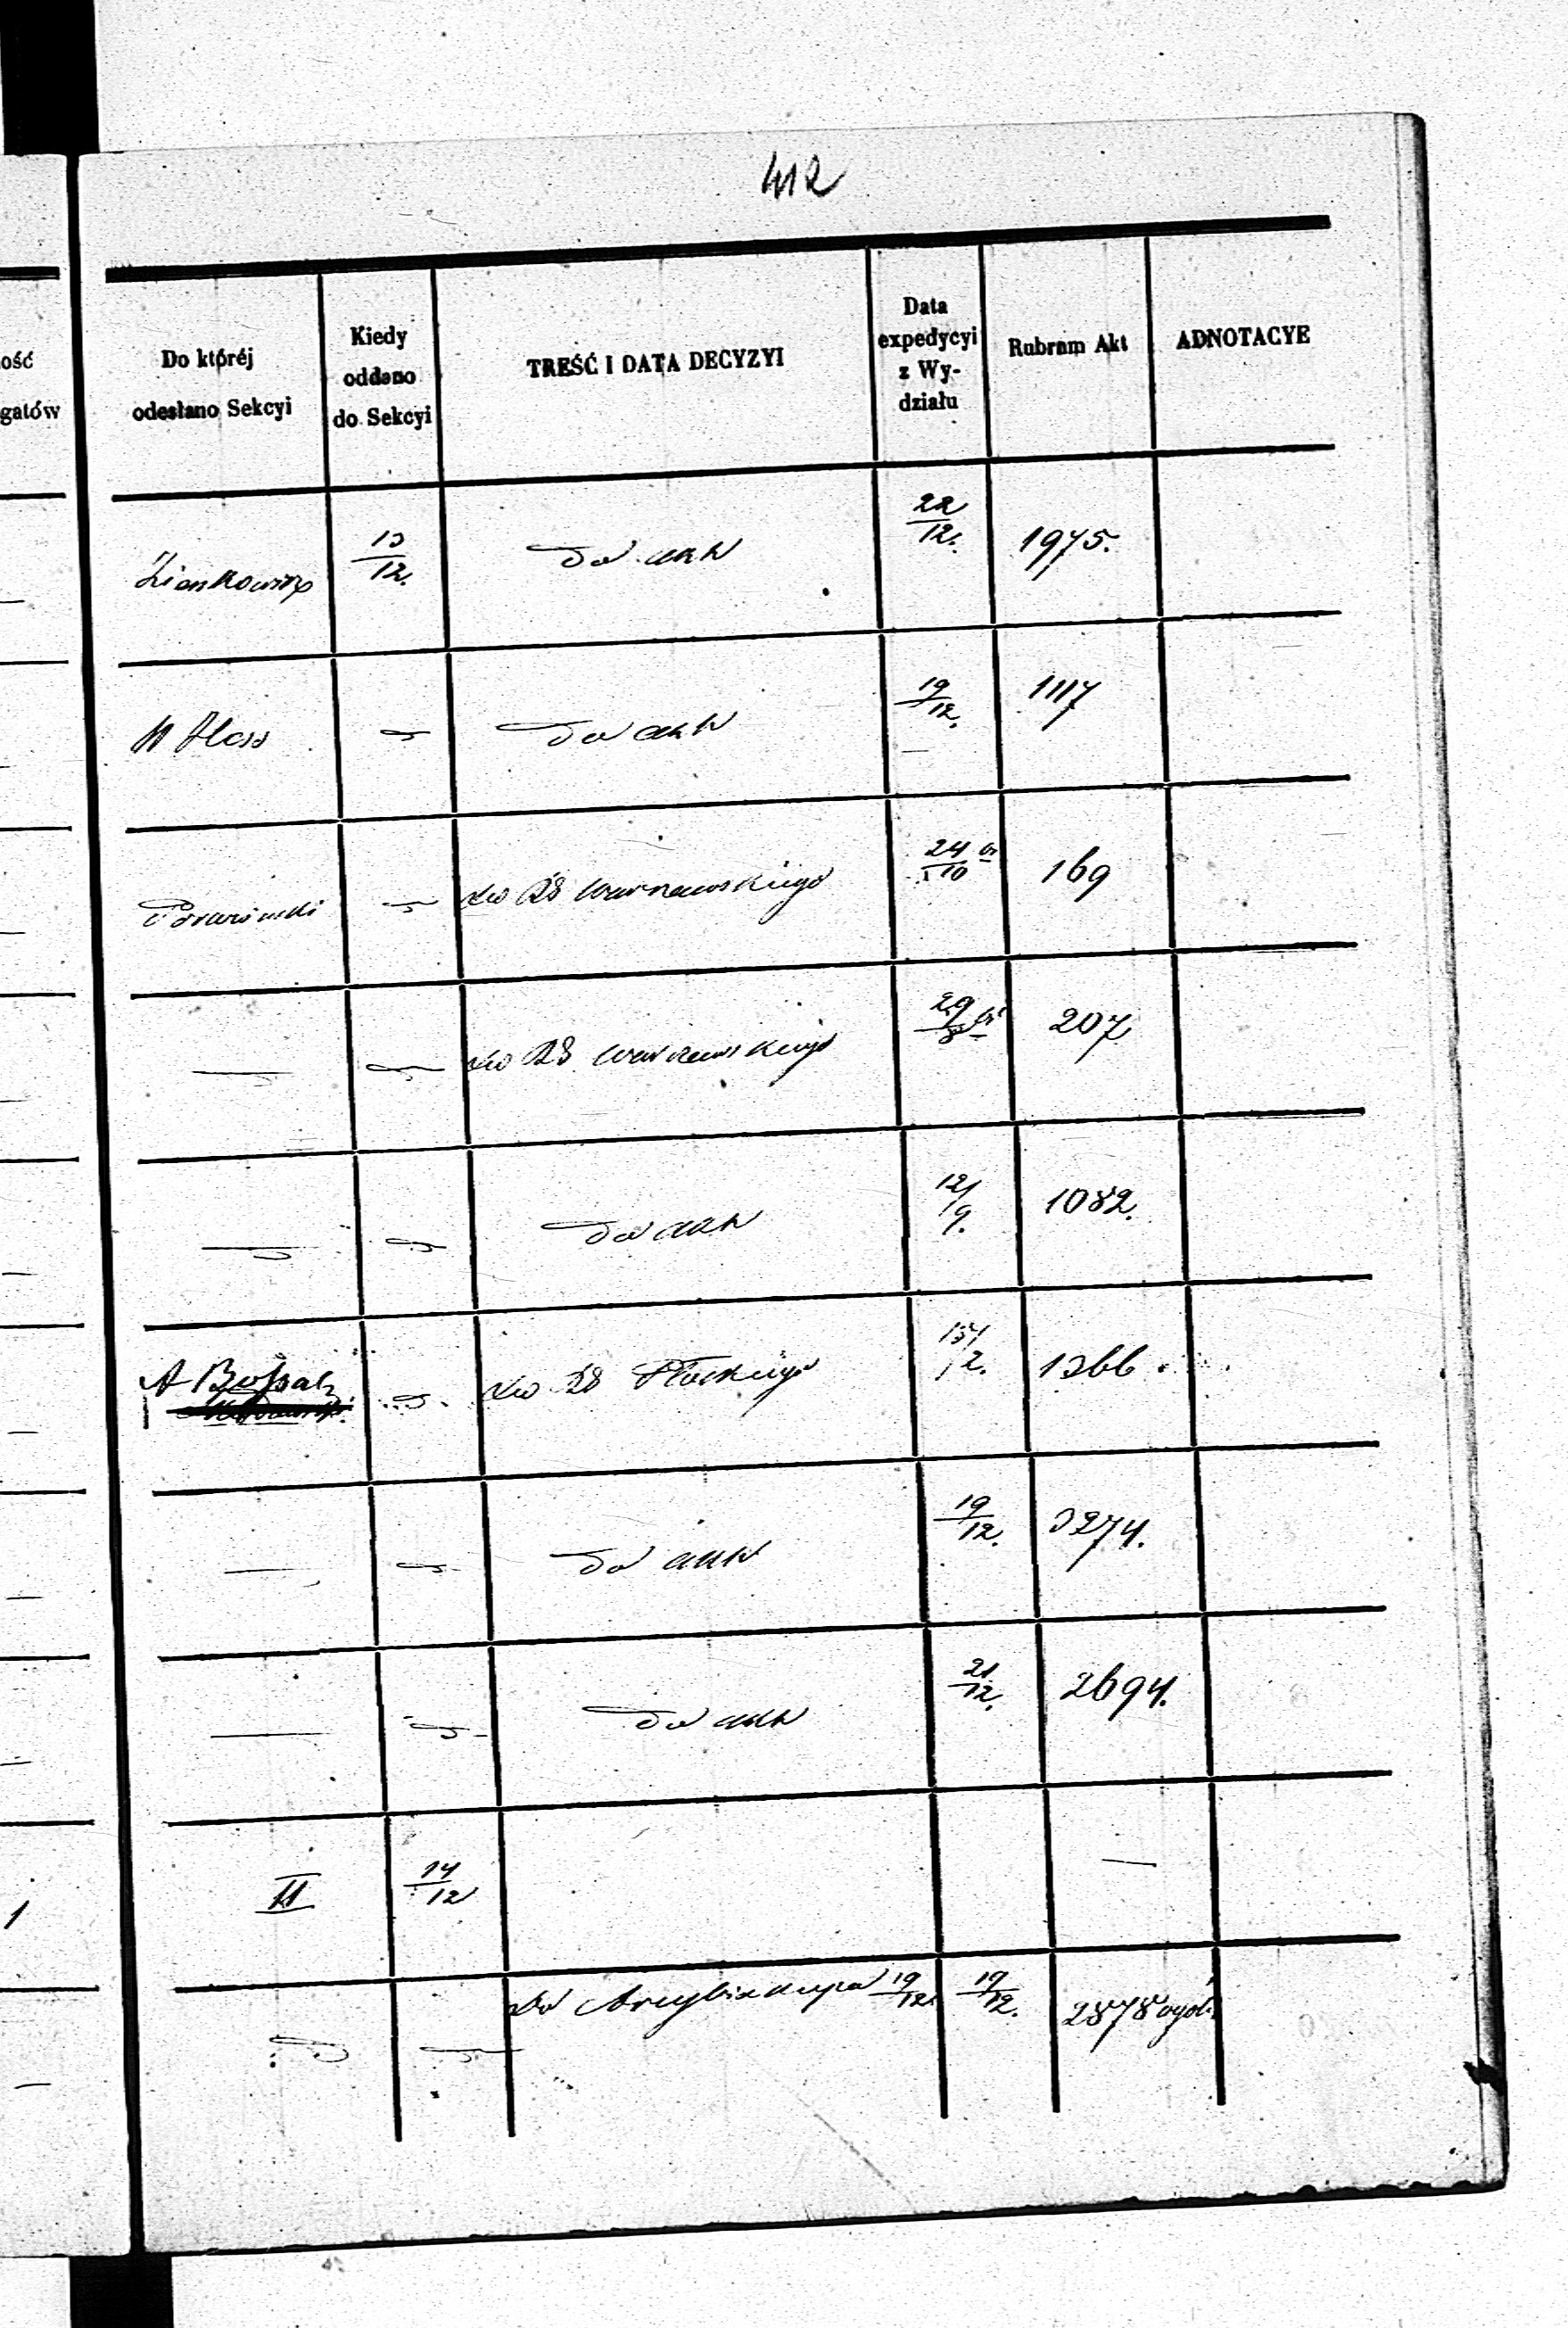 412
ość
gatów
Do któréj
odesłano Sekcyi
Kiedy
oddano
do Sekcyi
TREŚĆ I DATA DECYZYI
Data
expedycyi
z Wy-
działu
Rubrum Akt
ADNOTACYE
Zienkowicz 13/12. Do akt 22/12. 1975.
Hess Do akt 19/12. 1117
do RG Warszawskiego 24/10 169
do RG Warszawskiego 29/8 207
Do akt 12/9. 1082.
A
do RG Płockiego 1366.
Do akt 19/12. 3274.
Do akt 21/12. 2694.
1 II 14/12 —
Do Arcybiskupa 19/12. 19/12. 2878 ogól.